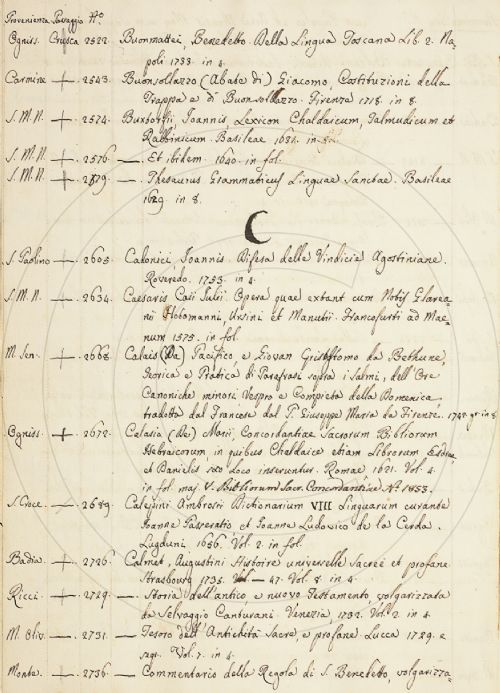 Provenienza Passaggio N.º
Ogniss. Crusca 2522. Buonmattei, Benedetto. Della Lingua Toscana Lib. 2. Na=
poli 1733. in 4.
Carmine + 2543. Buonsollazzo (Abate di) Giacomo, Costituzioni della
Trappa e di Buonsollazzo. Firenze 1718. in 8.
S. M. N. + 2574. Buxtorfii, Joannis, Lexicon Chaldaicum, Talmudicum et
Rabbinicum. Basileae in
S. M. N. + 2576 — . Et ibidem. 1640. in fol.
S. M. N. + 2579. — . Thesaurus Grammaticus Linguae Sanctae. Basileae
1629 in 8.
C
S. Paolino — . 2605. Calonici Joannis. Difesa delle Vindicie Agostiniane.
Roveredo. 1753. in 4.
S. M. N. — . 2634. Caesaris Caii Julii Opera quae extant cum Notis Glarea=
ni Hotomanni, Ursini et Manutii. Francofurti ad Mae=
num 1575. in fol.
M. Sen. + 2668. Calais (Da) Pacifico, e Giovan Grisostomo da Bethune,
Teorica e Pratica di Parafrasi sopra i Salmi, dell'Ore
Canoniche minori Vespro e Compieta della Domenica,
tradotta dal Francese dal P. Giuseppe Maria da Firenze. 1742. gr. in 8.
Ogniss. + 2672. Calasio (de) Marii, Concordantiae Sacrorum Bibliorum
Hebraicorum, in quibus Chaldaice etiam Librorum Esdrae,
et Danielis suo Loco inseruntur. Romae 1621. Vol. 4.
in fol. maj. V. Bibliorum Sacr. Concordantiae Nº. 1853.
S. Croce. — . 2689. Calepini Ambrosii Dictionarium VIII Linguarum curante
Joanne Passeratio et Joanne Ludovico de la Cerda.
Lugduni. 1656. Vol. 2. in fol.
Badia. + 2726. Calmet, Augustini Histoire universelle Sacrée et profane
Strasbourg 1735. — 47. Vol. 8. in 4.
Ricci. — . 2729. — Storia dell'antico, e nuovo Testamento, volgarizzata
da Selvaggio Canturani Venezia, 1732. Vol. 2. in 4.
M. Oliv. — . 2731. — Tesoro dell'Antichità Sacre, e profane. Lucca 1729. e
segg. Vol. 7. in 4.
Monte. — . 2736. — Commentario della Regola di S. Benedetto, volgarizza=